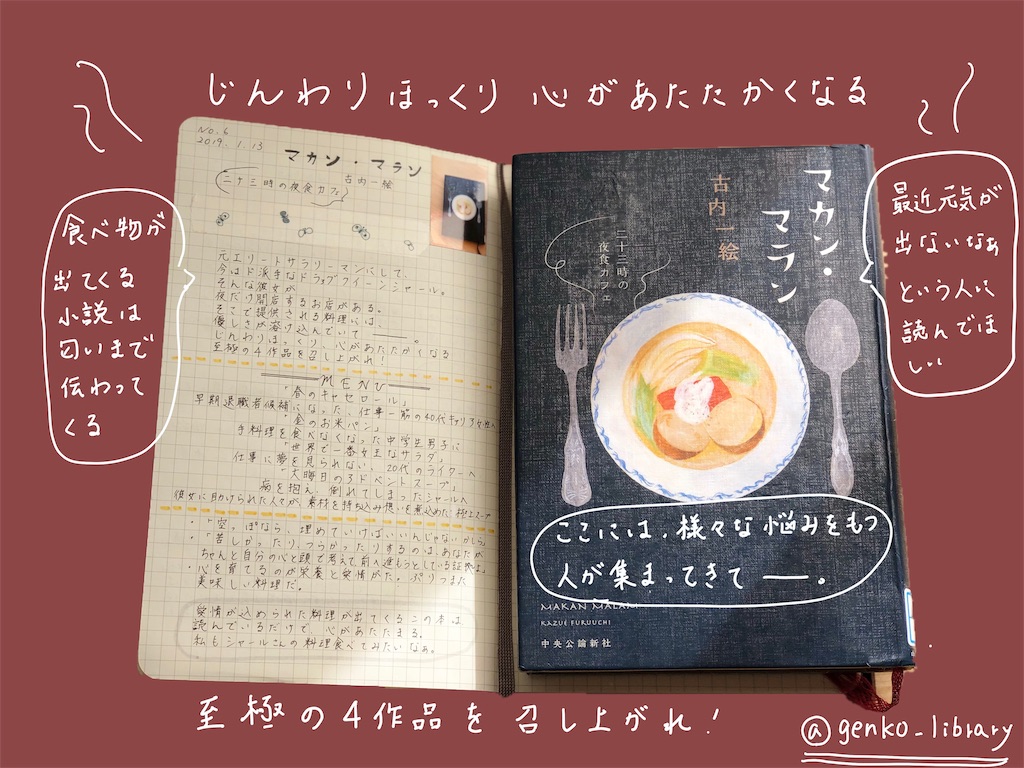 じんわりほっくり 心があたたかくなる
食べ物が
出てくる
小説は
匂いまで
伝わって
くる
NO.6
2019.1.13
マカン・マラン
古内一絵
二十三時の夜食カフェ
元エリートサラリーマンにして、
今はド派手なドラァグクイーンシャール。
そんな彼女が
夜だけ開店するお店がある。
そこで提供される料理には、
優しさが溶け込んでいて――。
じんわりほっくり、心があたたかくなる
至極の4作品を召し上がれ!
MENU
「春のキャセロール」
早期退職者候補になった、仕事一筋の40代キャリア女性へ
「金のお米パン」
手料理を食べなくなった中学生男子に
「世界で一番女王なサラダ」
仕事に夢を見られない、20代のライターへ
「大晦日のアドベントスープ」
病を抱え、倒れてしまったシャールへ
彼女に助けられた人々が、素材を持ち込み想いを煮込めた極上スープ
・「空っぽなら、埋めていけばいいんじゃないかしら」
・「苦しかったりつらかったりするのは、あなたが
ちゃんと自分の心と頭で考えて前へ進もうとしている証拠よ」
・心を育てるのが栄養と愛情がた。ぷりつまた
美味しい料理だ。
愛情が込められた料理が出てくるこの本は
読んでいるだけで、心があたたまる。
私もシャールさんの料理食べてみたいなぁ。
マカン・
マラン
古内一絵
二十三時の
夜食カフェ
最近元気が
出ないなぁ
という人に
読んでほ
しい
ここには、様々な悩みをもつ
人が集まってきて ―。
MAKAN MALAM
KAZUE FURUUCHI
中央公論新社
至極の4作品を召し上がれ!
@genko_library